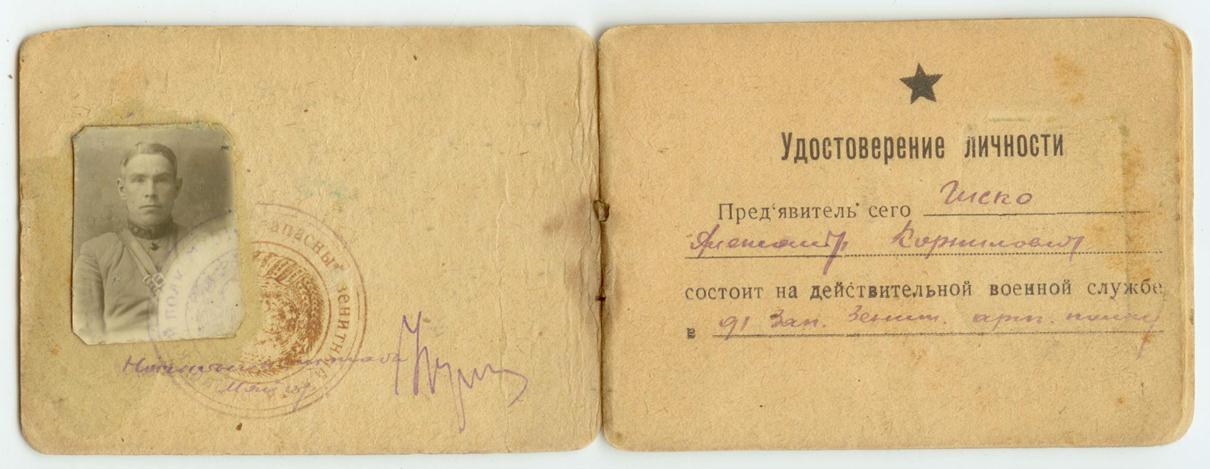 запасный зенитн
Начальник штаба
Майор
Удостоверение личности
Пред'явитель сего Шско
Александр Корнилович
состоит на действительной военной службе
в 91 Зап. Зенит. арт. полку